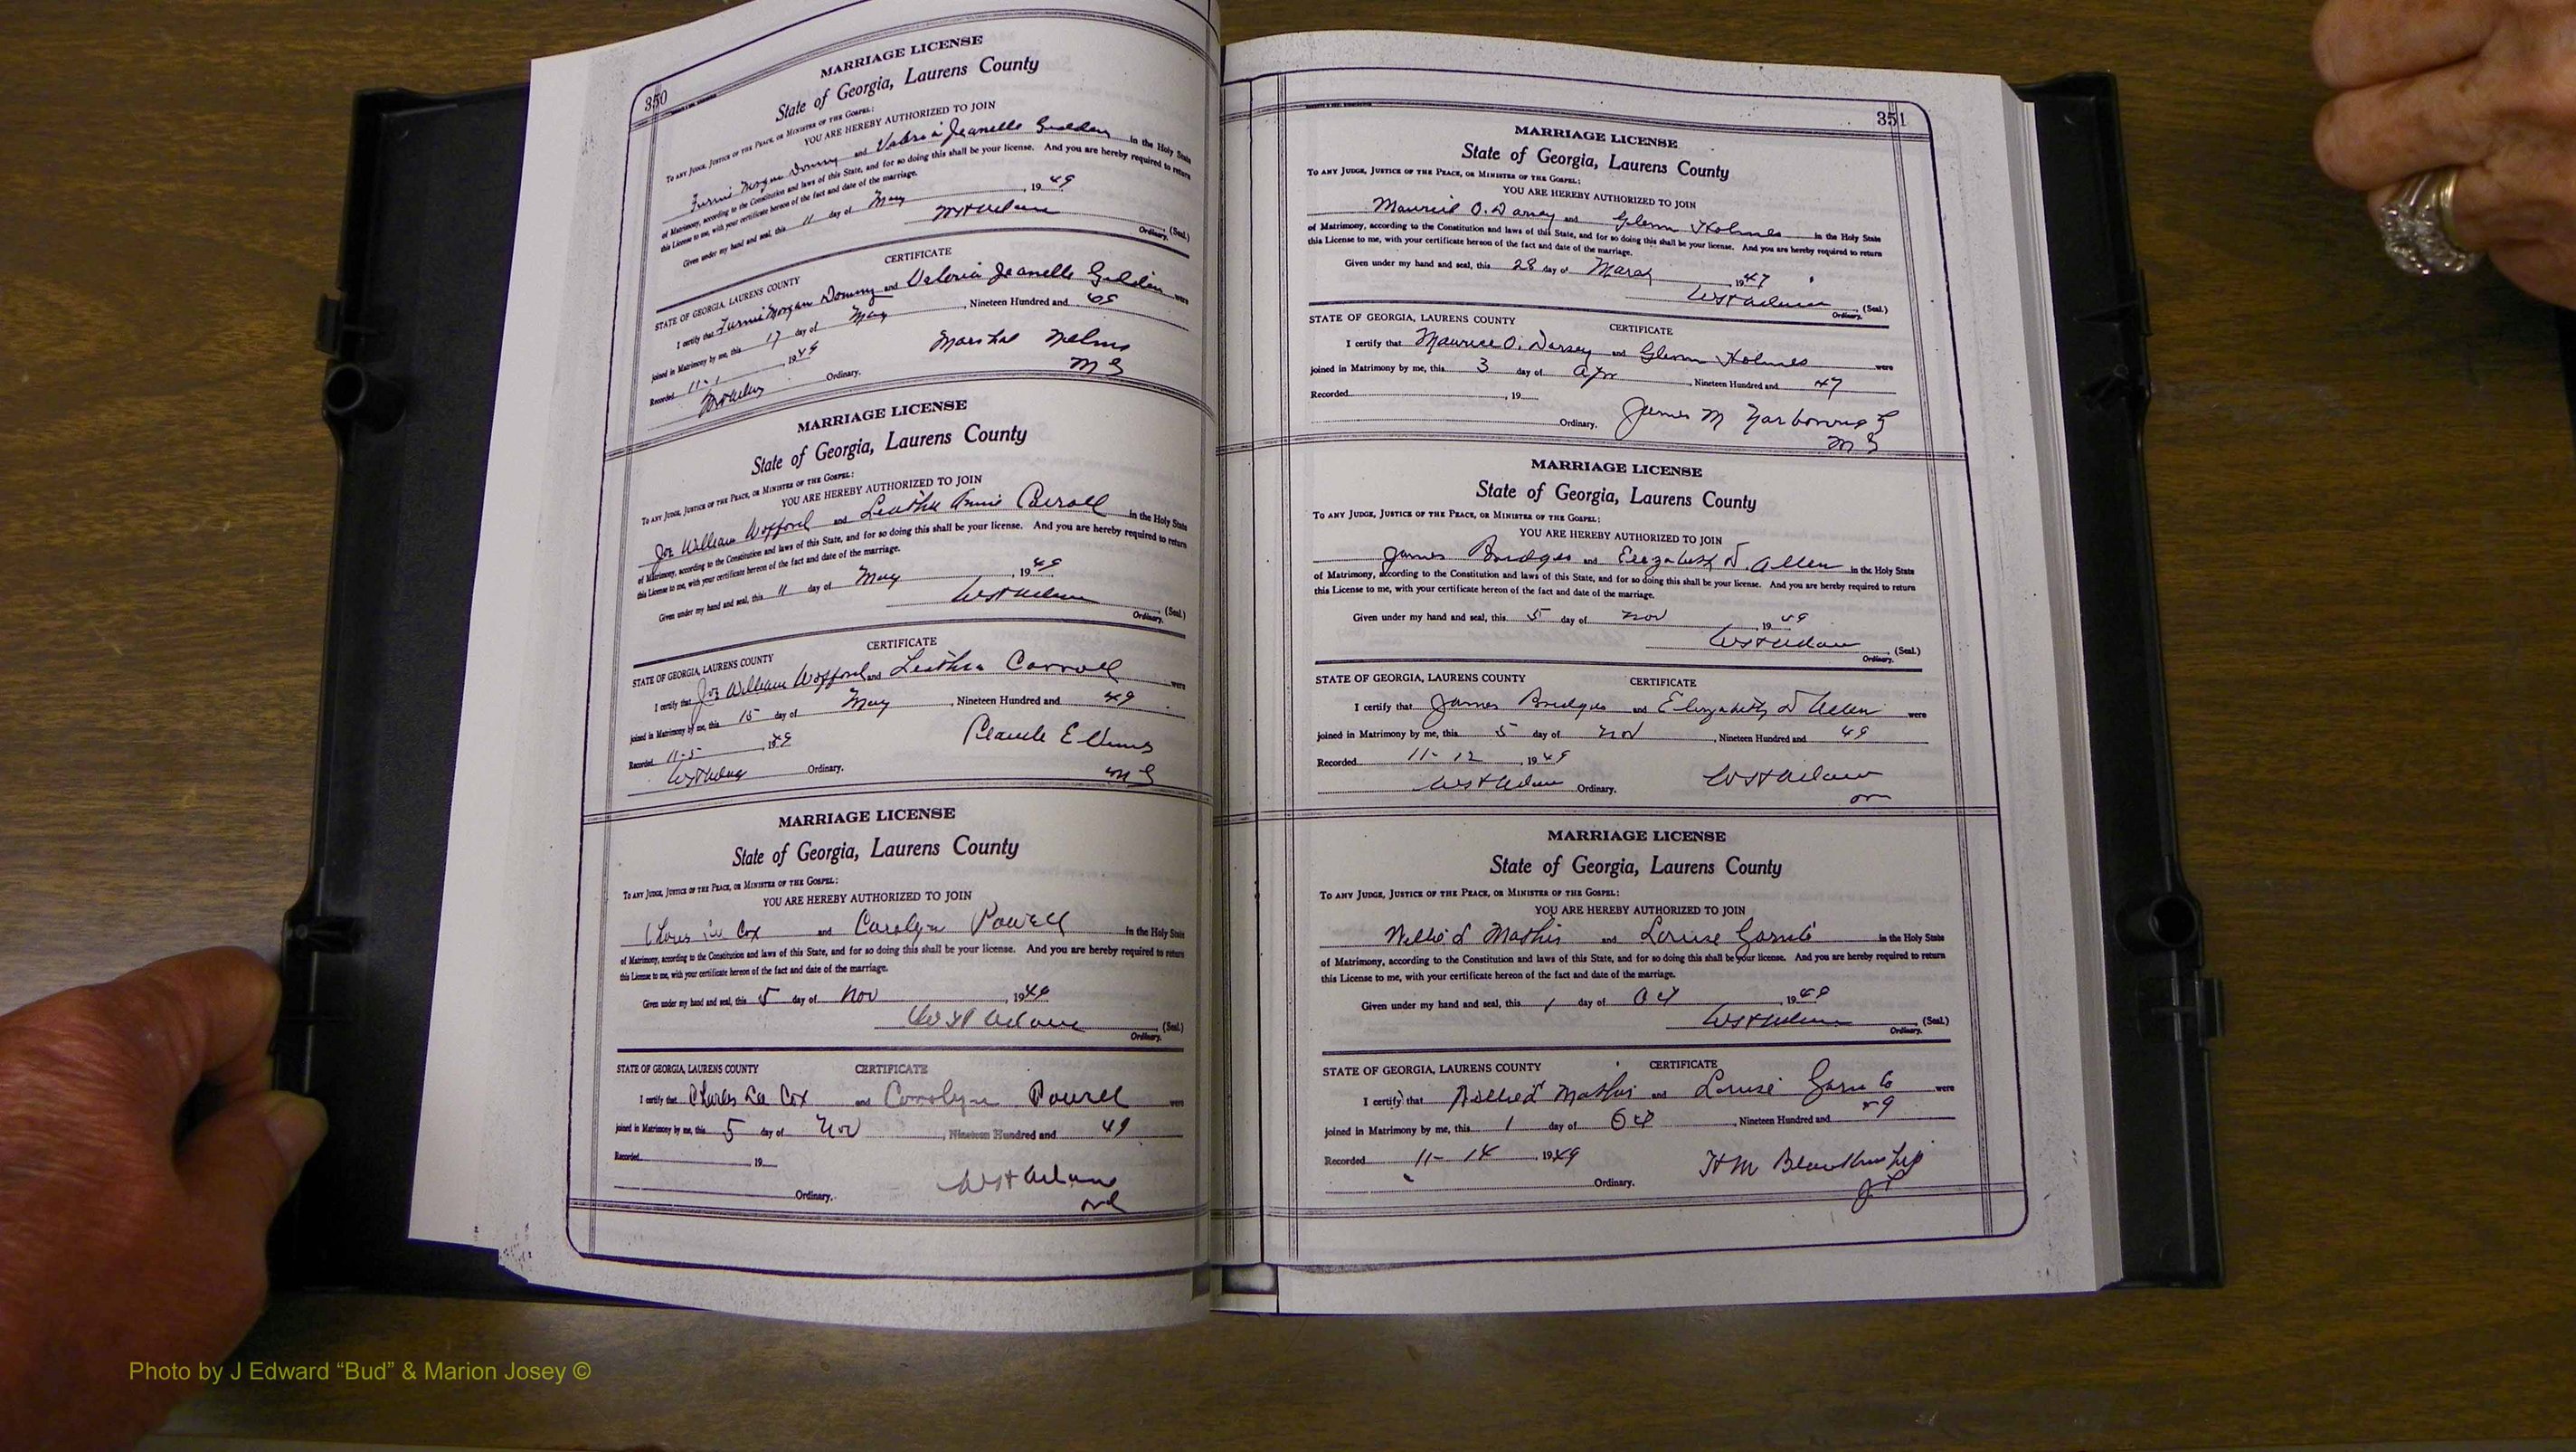 350
MARRIAGE LICENSE
State of Georgia, Laurens County
TO ANY JUDGE, JUSTICE OF THE PEACE, OR MINISTER OF THE GOSPEL:
YOU ARE HEREBY AUTHORIZED TO JOIN
and Jeanelle in the Holy State
of Matrimony, according to the Constitution and laws of this State, and for so doing this shall be your license. And you are hereby required to return
this License to me, with your certificate hereon of the fact and date of the marriage.
Given under my hand and seal, this 11 day of May, 1949
(Seal.)
Ordinary.
CERTIFICATE
STATE OF GEORGIA, LAURENS COUNTY
I certify that Morgan and Jeanelle were
joined in Matrimony by me, this 17 day of May, Nineteen Hundred and 49
Recorded 11-1, 1949
Ordinary.
MARRIAGE LICENSE
State of Georgia, Laurens County
TO ANY JUDGE, JUSTICE OF THE PEACE, OR MINISTER OF THE GOSPEL:
YOU ARE HEREBY AUTHORIZED TO JOIN
Joe William Wofford and Annie Carroll in the Holy State
of Matrimony, according to the Constitution and laws of this State, and for so doing this shall be your license. And you are hereby required to return
this License to me, with your certificate hereon of the fact and date of the marriage.
Given under my hand and seal, this 11 day of May, 1949
(Seal.)
Ordinary.
CERTIFICATE
STATE OF GEORGIA, LAURENS COUNTY
I certify that Joe William Wofford and Carroll were
joined in Matrimony by me, this 15 day of May, Nineteen Hundred and 49
Claude E
Recorded 11-5, 1949
Ordinary. MG
MARRIAGE LICENSE
State of Georgia, Laurens County
TO ANY JUDGE, JUSTICE OF THE PEACE, OR MINISTER OF THE GOSPEL:
YOU ARE HEREBY AUTHORIZED TO JOIN
Lee Cox and Carolyn Powell in the Holy State
of Matrimony, according to the Constitution and laws of this State, and for so doing this shall be your license. And you are hereby required to return
this License to me, with your certificate hereon of the fact and date of the marriage.
Given under my hand and seal, this 5 day of Nov, 1949
(Seal.)
Ordinary.
STATE OF GEORGIA, LAURENS COUNTY CERTIFICATE
I certify that Charles Lee Cox and Carolyn Powell were
joined in Matrimony by me, this 5 day of Nov, Nineteen Hundred and 49
Recorded, 19
Ordinary.
351
MARRIAGE LICENSE
State of Georgia, Laurens County
TO ANY JUDGE, JUSTICE OF THE PEACE, OR MINISTER OF THE GOSPEL:
YOU ARE HEREBY AUTHORIZED TO JOIN
O. and Glenn Holmes in the Holy State
of Matrimony, according to the Constitution and laws of this State, and for so doing this shall be your license. And you are hereby required to return
this License to me, with your certificate hereon of the fact and date of the marriage.
Given under my hand and seal, this 28 day of March 1947
(Seal.)
Ordinary.
STATE OF GEORGIA, LAURENS COUNTY CERTIFICATE
I certify that Maurice O. Darsey and Glenn Holmes were
joined in Matrimony by me, this 3 day of Apr, Nineteen Hundred and 47
Recorded, 19
Ordinary. James M
MG
MARRIAGE LICENSE
State of Georgia, Laurens County
TO ANY JUDGE, JUSTICE OF THE PEACE, OR MINISTER OF THE GOSPEL:
YOU ARE HEREBY AUTHORIZED TO JOIN
James Bridges and Elizabeth D. Allen in the Holy State
of Matrimony, according to the Constitution and laws of this State, and for so doing this shall be your license. And you are hereby required to return
this License to me, with your certificate hereon of the fact and date of the marriage.
Given under my hand and seal, this 5 day of Nov, 1949
(Seal.)
Ordinary.
STATE OF GEORGIA, LAURENS COUNTY CERTIFICATE
I certify that James Bridges and Elizabeth D Allen were
joined in Matrimony by me, this 5 day of Nov, Nineteen Hundred and 49
Recorded 11-12, 1949
Ordinary.
MARRIAGE LICENSE
State of Georgia, Laurens County
TO ANY JUDGE, JUSTICE OF THE PEACE, OR MINISTER OF THE GOSPEL:
YOU ARE HEREBY AUTHORIZED TO JOIN
Mathis and Louise in the Holy State
of Matrimony, according to the Constitution and laws of this State, and for so doing this shall be your license. And you are hereby required to return
this License to me, with your certificate hereon of the fact and date of the marriage.
Given under my hand and seal, this 1 day of Oct, 1949
(Seal.)
Ordinary.
STATE OF GEORGIA, LAURENS COUNTY CERTIFICATE
I certify that Mathis and Louise were
joined in Matrimony by me, this 1 day of Oct, Nineteen Hundred and 49
Recorded 11-14, 1949 H M Blankenship
Ordinary.
Photo by J Edward “Bud” & Marion Josey ©